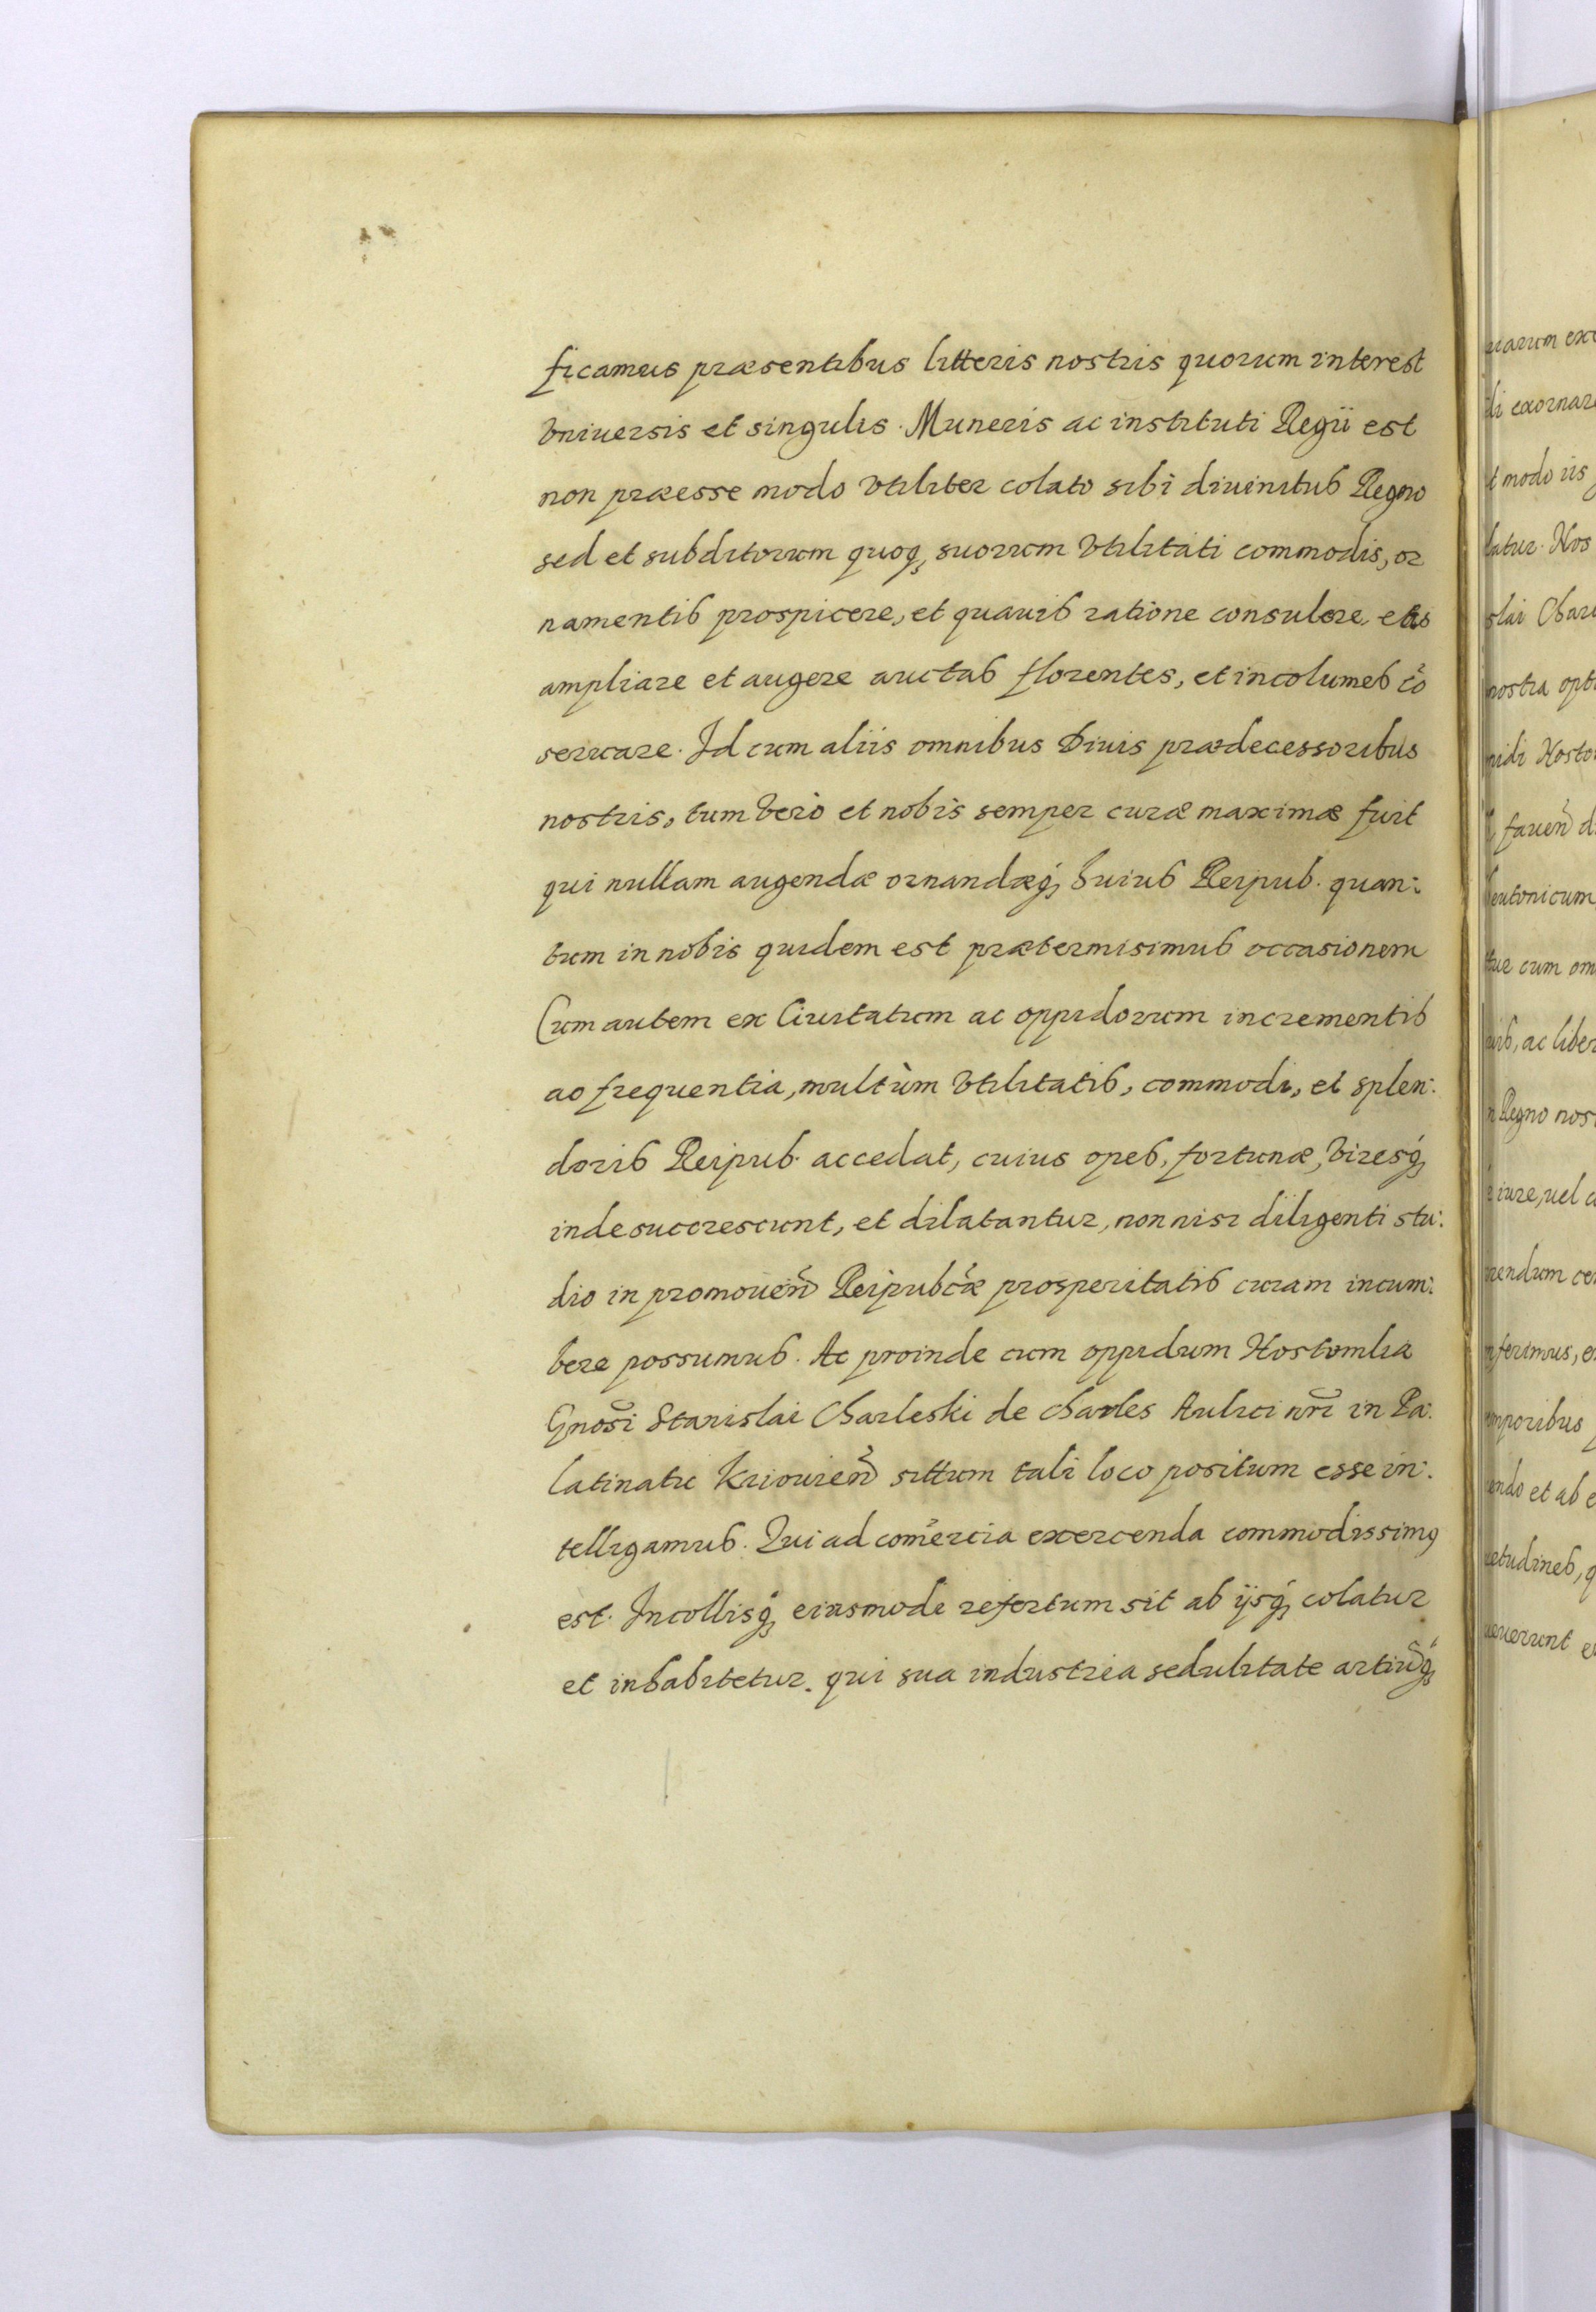 ficamus præsentibus litteris nostris quorum interest
Vniuersis et singulis. Muneris ac instituti Regii est
non præesse modo Vtiliter colato sibi diuinitus Regno
sed et subditorum quoq, suorum Vtilitati commodis, or
namentis prospicere, et quauis ratione consulere, eas
ampliare et augere auctas florentes, et incolumes cõ
seruare. Id cum aliis omnibus Diuis prædecessoribus
nostris, tum Verò et nobis semper curæ maximæ fuit
qui nullam augendæ ornandæq́, huius Reipub. quan:
tum in nobis quidem est prætermisimus occasionem
Cum autem ex Ciuitatum ac oppidorum incrementis
ac frequentia, multùm Vtilitatis, commodi, et splen:
doris Reipub. accedat, cuius opes, fortunæ, Viresq́,
inde succrescunt, et dilatantur, non nisi diligenti stu:
dio in promoueñ Reipubcæ prosperitatis curam incum:
bere possumus. Ac proinde cum oppidum Hostomlia
Gnõsi Stanislai Charleski de Charles Aulici nr̃i in Pa:
latinatu Kriouieñ sittum tali loco positum esse in:
telligamus. Qui ad com̃ercia exercenda commodissimq
est. Incollisq́, eiusmode refertum sit ab ijsq́, colatur
et inhabitetur. qui sua industria sedulitate artiũq́,
uarum exc
di exornar
t modo iis
latur. Nos
slai Char
nostra opt
pidi Hosto
faueñ d
teutonicum
tue cum om
uis, ac liber
n Regno nos
iure, uel a
rendum cen
nferimus, e
emporibus
endo et ab e
uetudines, q
ueuerunt e